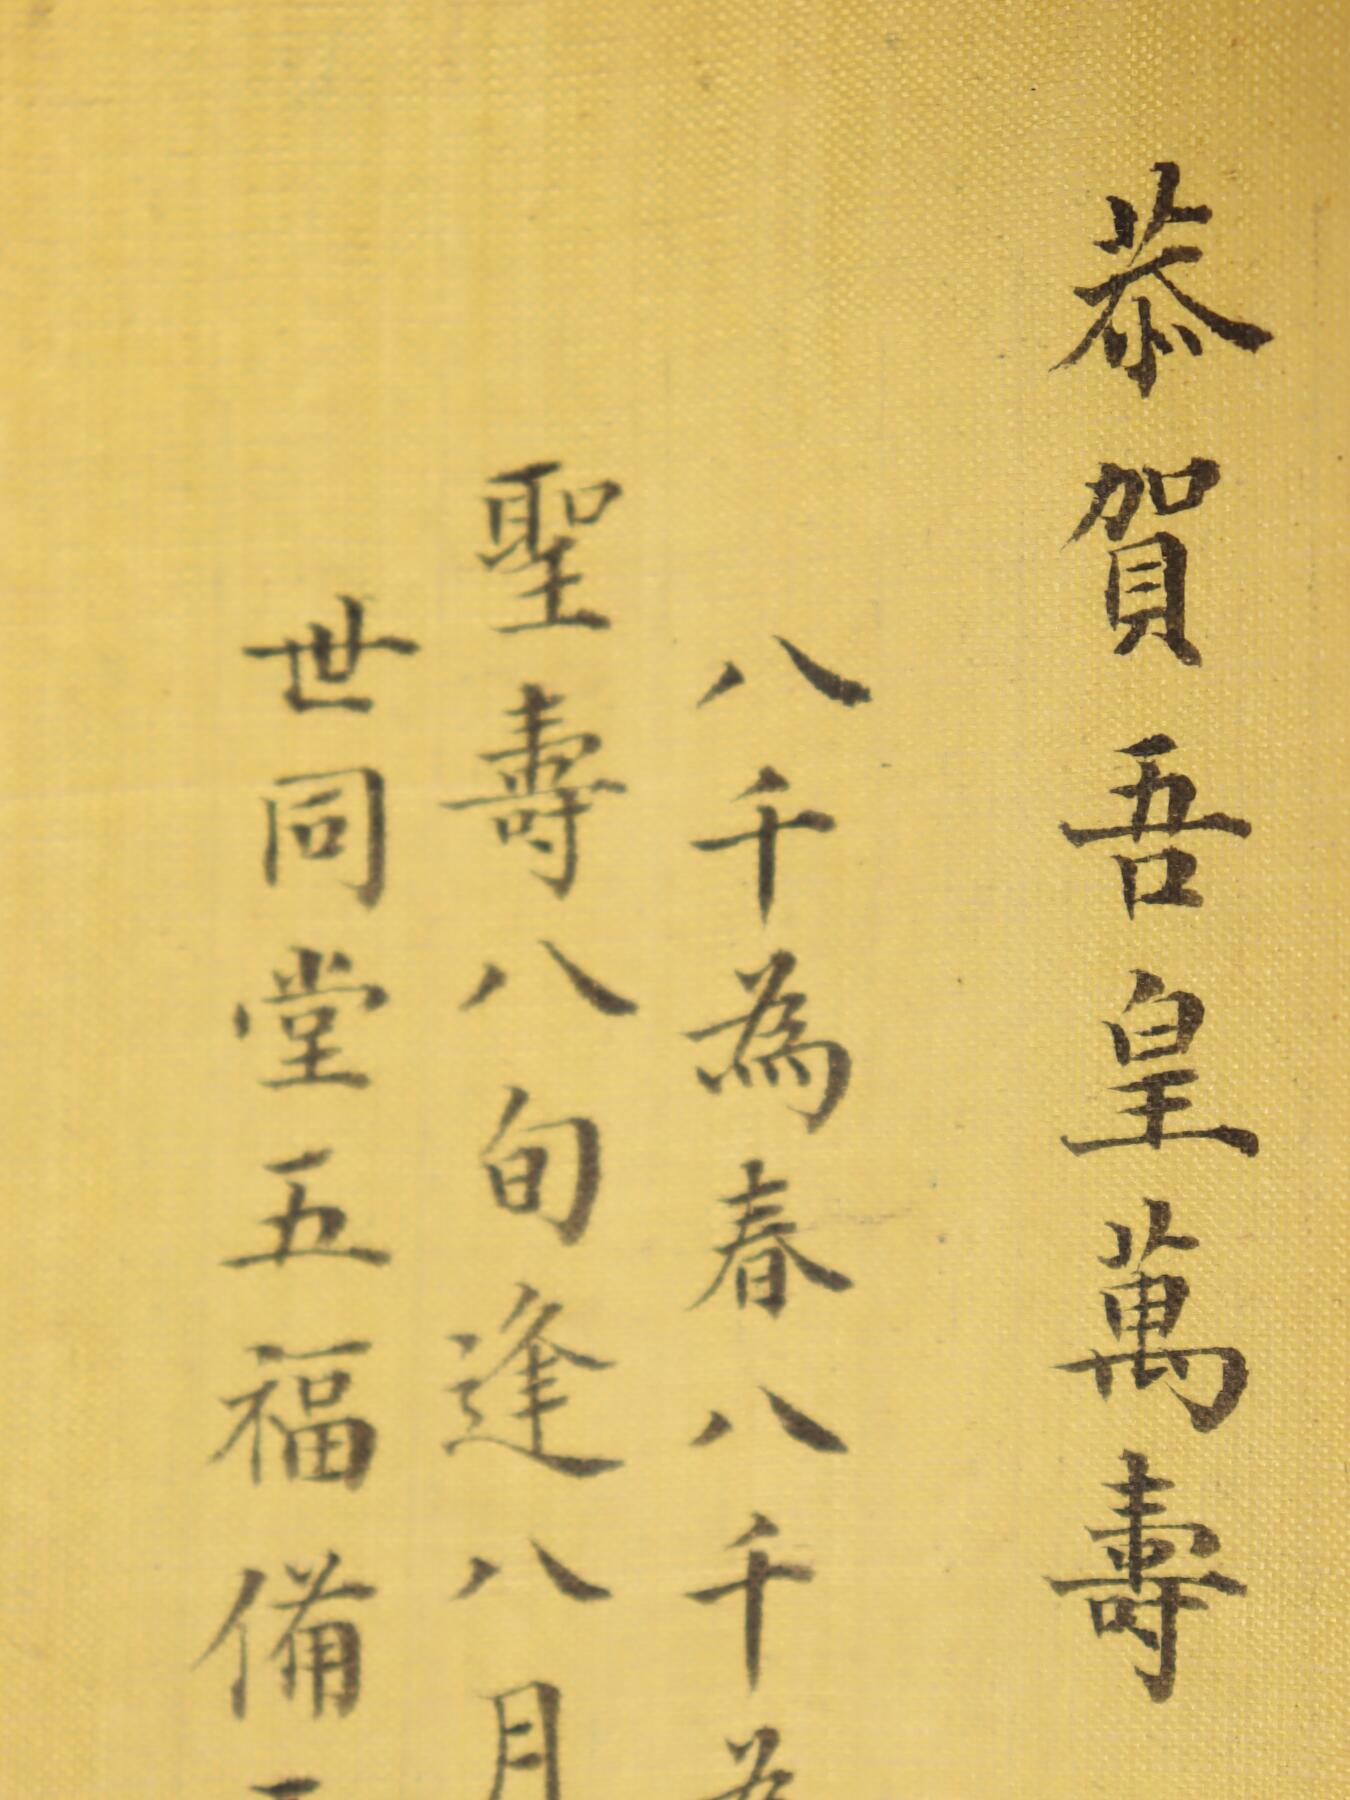 恭賀吾皇萬壽
八千為春八千為
聖壽八旬逢八月
世同堂五福備